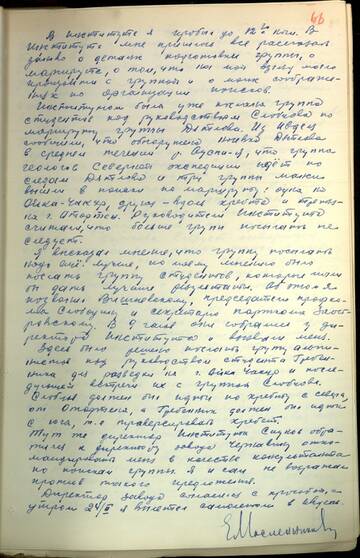 66
В институте я пробыл до 12 час. В
институте мне пришлось всё рассказать
заново о деталях подготовки группы, о
маршруте, о том, что по мой взгляд могло
произойти с группой и о моих соображе-
ниях по организации поисков.
Институтом была уже послана группа
студентов под руководством Слобцова по
маршруту группы Дятлова. Из Ивдель
сообщили, что обнаружена лыжня Дятлова
в среднем течении р. Ауспии, что группа
геологов Северной экспедиции идёт по
следам Дятлова и три группы манси
вышли в поиски по маршруту: одна на
Ойка-Чакур, другая - вдоль хребта и третья
на г. Отортен. Руководители института
считали, что больше групп посылать не
следует.
Я высказал мнение, что группу посылать
надо ещё лучше, по моему мнению было
послать группу студентов, которые могли
бы дать лучшие результаты. Об этом я
позвонил Вишневскому, председателю профко-
ма Слободину и секретарю парткома Заост-
ровскому. В 9 часов они собрались у ди-
ректора института и вызвали меня.
Здесь было решено послать группу альпи-
нистов под руководством студента Гребен-
ника для разведки на г. Ойка Чакур и после-
дующей встречи их с группой Слобцова.
Слобцов должен был идти по хребту с севера,
от Отортена, а Гребенник должен был идти
с юга, т.е. траверсировать хребет.
Тут же директор института Сиунов обра-
тился к директору завода Чернявину отко-
мандировать меня в качестве консультанта
по поискам группы. Я и сам не возражал
против такого предложения.
Директор завода согласился с просьбой, и
утром 24/II я вылетел самолётом в Ивдель.
Е Масленников